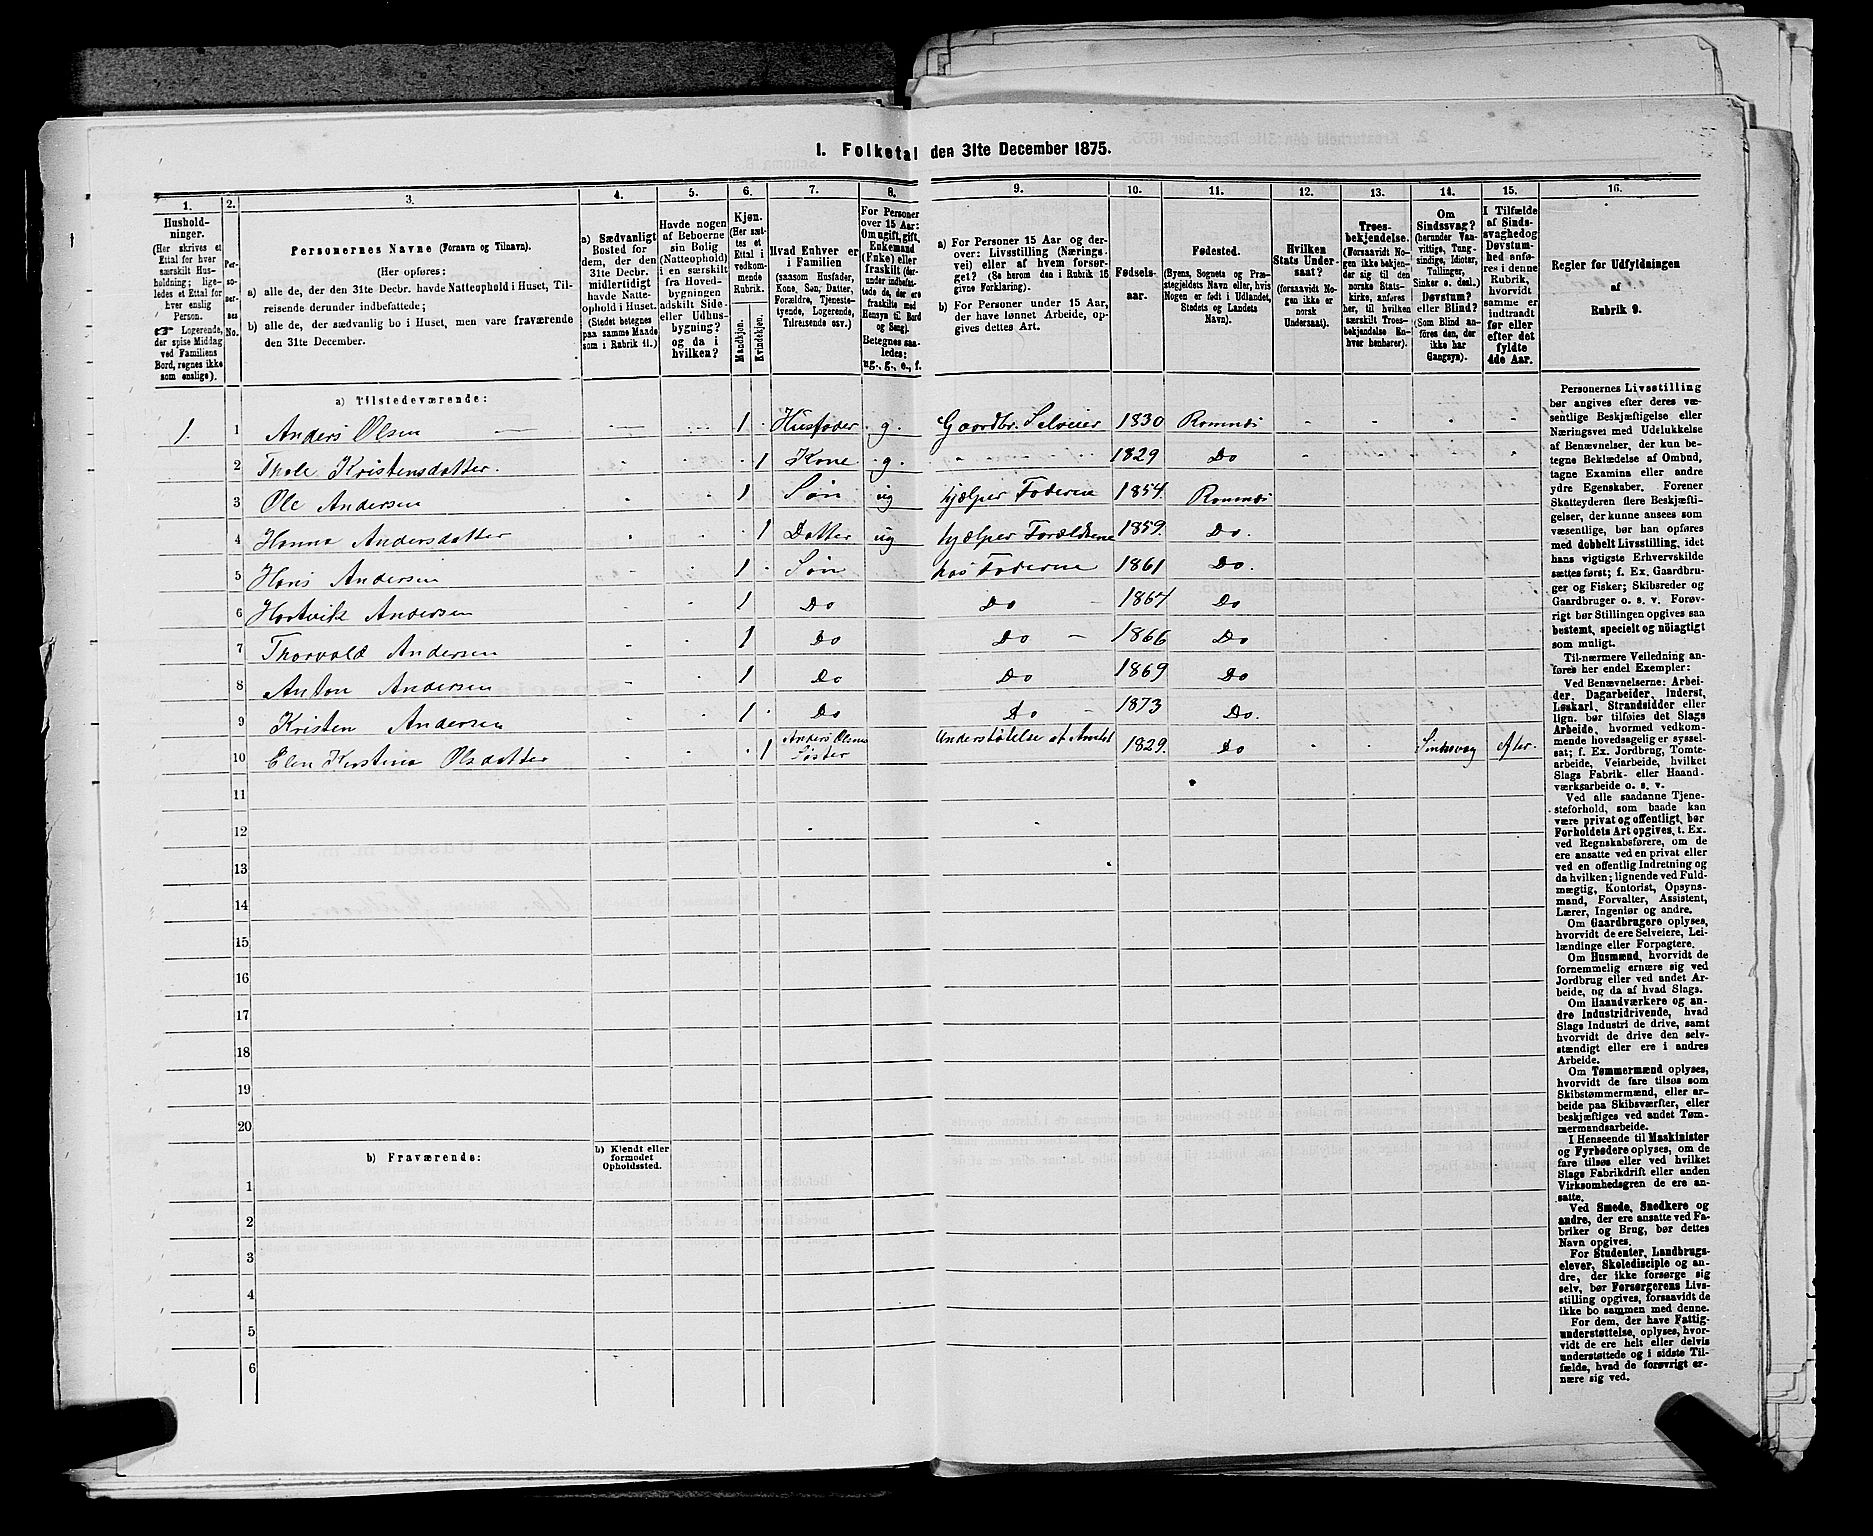 I. Folketal den 31te December 1875.
1. 2. 3. 4. 5. 6. 7. 8. 9. 10. 11. 12. 13. 14. 15. 16.
Hushold-
ninger.
(Her skrives et
Ettal for hver
særskilt Hus-
holdning; lige-
ledes et Ettal for
hver enslig
Person.
☞ Logerende,
der spise Middag
ved Familiens
Bord, regnes ikke
som enslige).
Per-
so-
ner-
nes
No.
Personernes Navne (Fornavn og Tilnavn).
(Her opføres:
a) alle de, der den 31te Decbr. havde Natteophold i Huset, Til-
reisende derunder indbefattede;
b) alle de, der sædvanlig bo i Huset, men vare fraværende
den 31te December.
a) Sædvanligt
Bosted for
dem, der den
31te Decbr.
midlertidigt
havde Natte-
ophold i Huset.
(Stedet betegnes
paa samme Maade
som i Rubrik 11.)
Havde nogen
af Beboerne
sin Bolig
(Natteophold)
i en særskilt
fra Hoved-
bygningen
adskilt Side-
eller Udhus-
bygning?
og da i
hvilken?
Kjøn.
(Her sæt-
tes et
Ettal i
vedkom-
mende
Rubrik.
Mandkjøn.
Kvindekjøn.
Hvad Enhver er
i Familien
(saasom Husfader,
Kone, Søn, Datter,
Forældre, Tjeneste-
tyende, Logerende,
Tilreisende osv.)
For Personer
over 15 Aar:
Om ugift, gift,
Enkemand
(Enke) eller
fraskilt (der-
under indbefat-
tede de, der ere
fraskilte med
Hensyn til Bord
og Seng).
Betegnes saa-
ledes:
ug., g., e., f.
a) For Personer 15 Aar og der-
over: Livsstilling (Nærings-
vei) eller af hvem forsør-
get? (Se herom den i Rubrik 16
givne Forklaring).
b) For Personer under 15 Aar,
der have lønnet Arbeide, op-
gives dettes Art.
Fødsels-
aar.
Fødested.
(Byens, Sognets og Præ-
stegjeldets Navn eller, hvis
Nogen er født i Udlandet,
Stedets og Landets
Navn).
Hvilken
Stats Under-
saat?
(forsaavidt No-
gen ikke er
norsk
Undersaat).
Troes-
bekjendelse.
(Forsaavidt No-
gen ikke bekjen-
der sig til den
norske Stats-
kirke, anføres
her, til hvilken
særskilt Troes-
bekjendelse En-
hver henhører).
Om
Sindssvag?
(herunder Van-
vittige, Tung-
sindige, Idioter,
Tullinger,
Sinker o. desl.)
Døvstum?
eller Blind?
(Som Blind an-
føres den, der
ikke har
Gangsyn).
I Tilfælde
af Sinds-
svaghed og
Døvstum-
hed anfø-
res i denne
Rubrik,
hvorvidt
samme er
indtraadt
før eller
efter det
fyldte
4de Aar.
Regler for Udfyldningen
af
Rubrik 9.
a) Tilstedeværende:
1. 1 Anders Olsen 1 Husfader g. Gaardbr. Selveier 1830
2 Kristensdatter. 1 Kone g. 1829 Do
3 Ole Andersen 1 Søn ug hjælper Faderen 1854.
4 Andersdatter 1 Datter ug hjælper Forældrene 1859. Do.
5 Hans Andersen 1 Søn hos Faderen 1861 Do.
6 Andersen 1 Do Do 1864 Do
7 Thorvald Andersen 1 Do Do 1866 Do
8 Anton Andersen 1 Do Do 1869 Do
9 Kristen Andersen 1 Do Do 1873 Do.
10 Olsdatter 1 Anders Olsens Søster Understøttelse af Amtet 1829. Do Sindssvag efter.
11
12
13
14
15
16
17
18
19
20
b) Fraværende:
b) Kjendt eller
formodet
Opholdssted.
1
2
3
4
5
6
Personernes Livsstilling
bør angives efter deres væ-
sentlige Beskjæftigelse eller
Næringsvei med Udelukkelse
af Benævnelser, der kun be-
tegne Beklædelse af Ombud,
tagne Examina eller andre
ydre Egenskaber. Forener
Skatteyderen flere Beskjæfti-
gelser, der kunne ansees som
væsentlige, bør han opføres
med dobbelt Livsstilling, idet
hans vigtigste Erhvervskilde
sættes først; f. Ex. Gaardbru-
ger og Fisker; Skibsreder og
Gaardbruger o. s. v. Forøv-
rigt bør Stillingen opgives saa
bestemt, specielt og nöiagtigt
som muligt.
Til nærmere Veiledning an-
føres her endel Exempler:
Ved Benævnelserne: Arbei-
der, Dagarbeider, Inderst,
Løskarl, Strandsidder eller
lign. bør tilføies det Slags
Arbeide, hvormed vedkom-
mende hovedsagelig er syssel-
sat; f. Ex. Jordbrug, Tomte-
arbeide, Veiarbeide, hvilket
Slags Fabrik- eller Haand-
værksarbeide o. s. v.
Ved alle saadanne Tjene-
steforhold, som baade kan
være privat og offentligt, bør
Forholdets Art opgives, t. Ex.
ved Regnskabsførere, om de
ere ansatte ved en privat eller
ved en offentlig Indretning og
da hvilken; lignende ved Fuld-
mægtig, Kontorist, Opsyns-
mand, Forvalter, Assistent,
Lærer, Ingeniør og andre.
Om Gaardbrugere oplyses,
hvorvidt de ere Selveiere, Lei-
lændinge eller Forpagtere.
Om Husmænd, hvorvidt de
fornemmelig ernære sig ved
Jordbrug eller ved andet Ar-
beide, og da af hvad Slags.
Om Haandværkere og an-
dre Industridrivende, hvad
Slags Industri de drive, samt
hvorvidt de drive den selv-
stændigt eller ere i andres
Arbeide.
Om Tømmermænd oplyses,
hvorvidt de fare tilsøs som
Skibstømmermænd, eller ar-
beide paa Skibsværfter, eller
beskjæftiges ved andet Tøm-
mermandsarbeide.
I Henseende til Maskinister
og Fyrbødere oplyses, om de
fare tilsøs eller ved hvilket
Slags Fabrikdrift eller anden
Virksomhedsgren de ere an-
satte.
Ved Smede, Snedkere og
andre, der ere ansatte ved Fa-
briker og Brug, bør dettes
Navn opgives.
For Studenter, Landbrugs-
elever, Skoledisciple og an-
dre, der ikke forsørge sig
selv, bør Forsørgerens Livs-
stilling opgives, forsaavidt de
ikke bo sammen med denne.
For dem, der have Fattig-
understøttelse, oplyses, hvor-
vidt de ere helt eller delvis
understøttede og i sidste Til-
fælde, hvad de forøvrigt er-
nære sig ved.